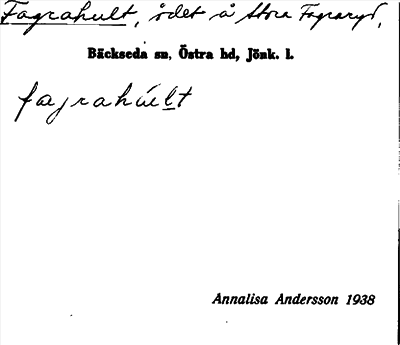 Fagrahult, ödet å Stora Fagraryd,
Bäckseda sn, Östra hd, Jönk. l.
fagrahúlt
Annalisa Andersson 1938